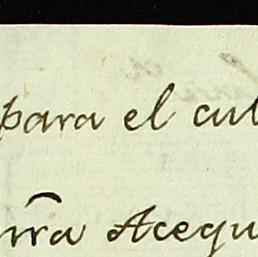 para el cul
nr̃a Acequ